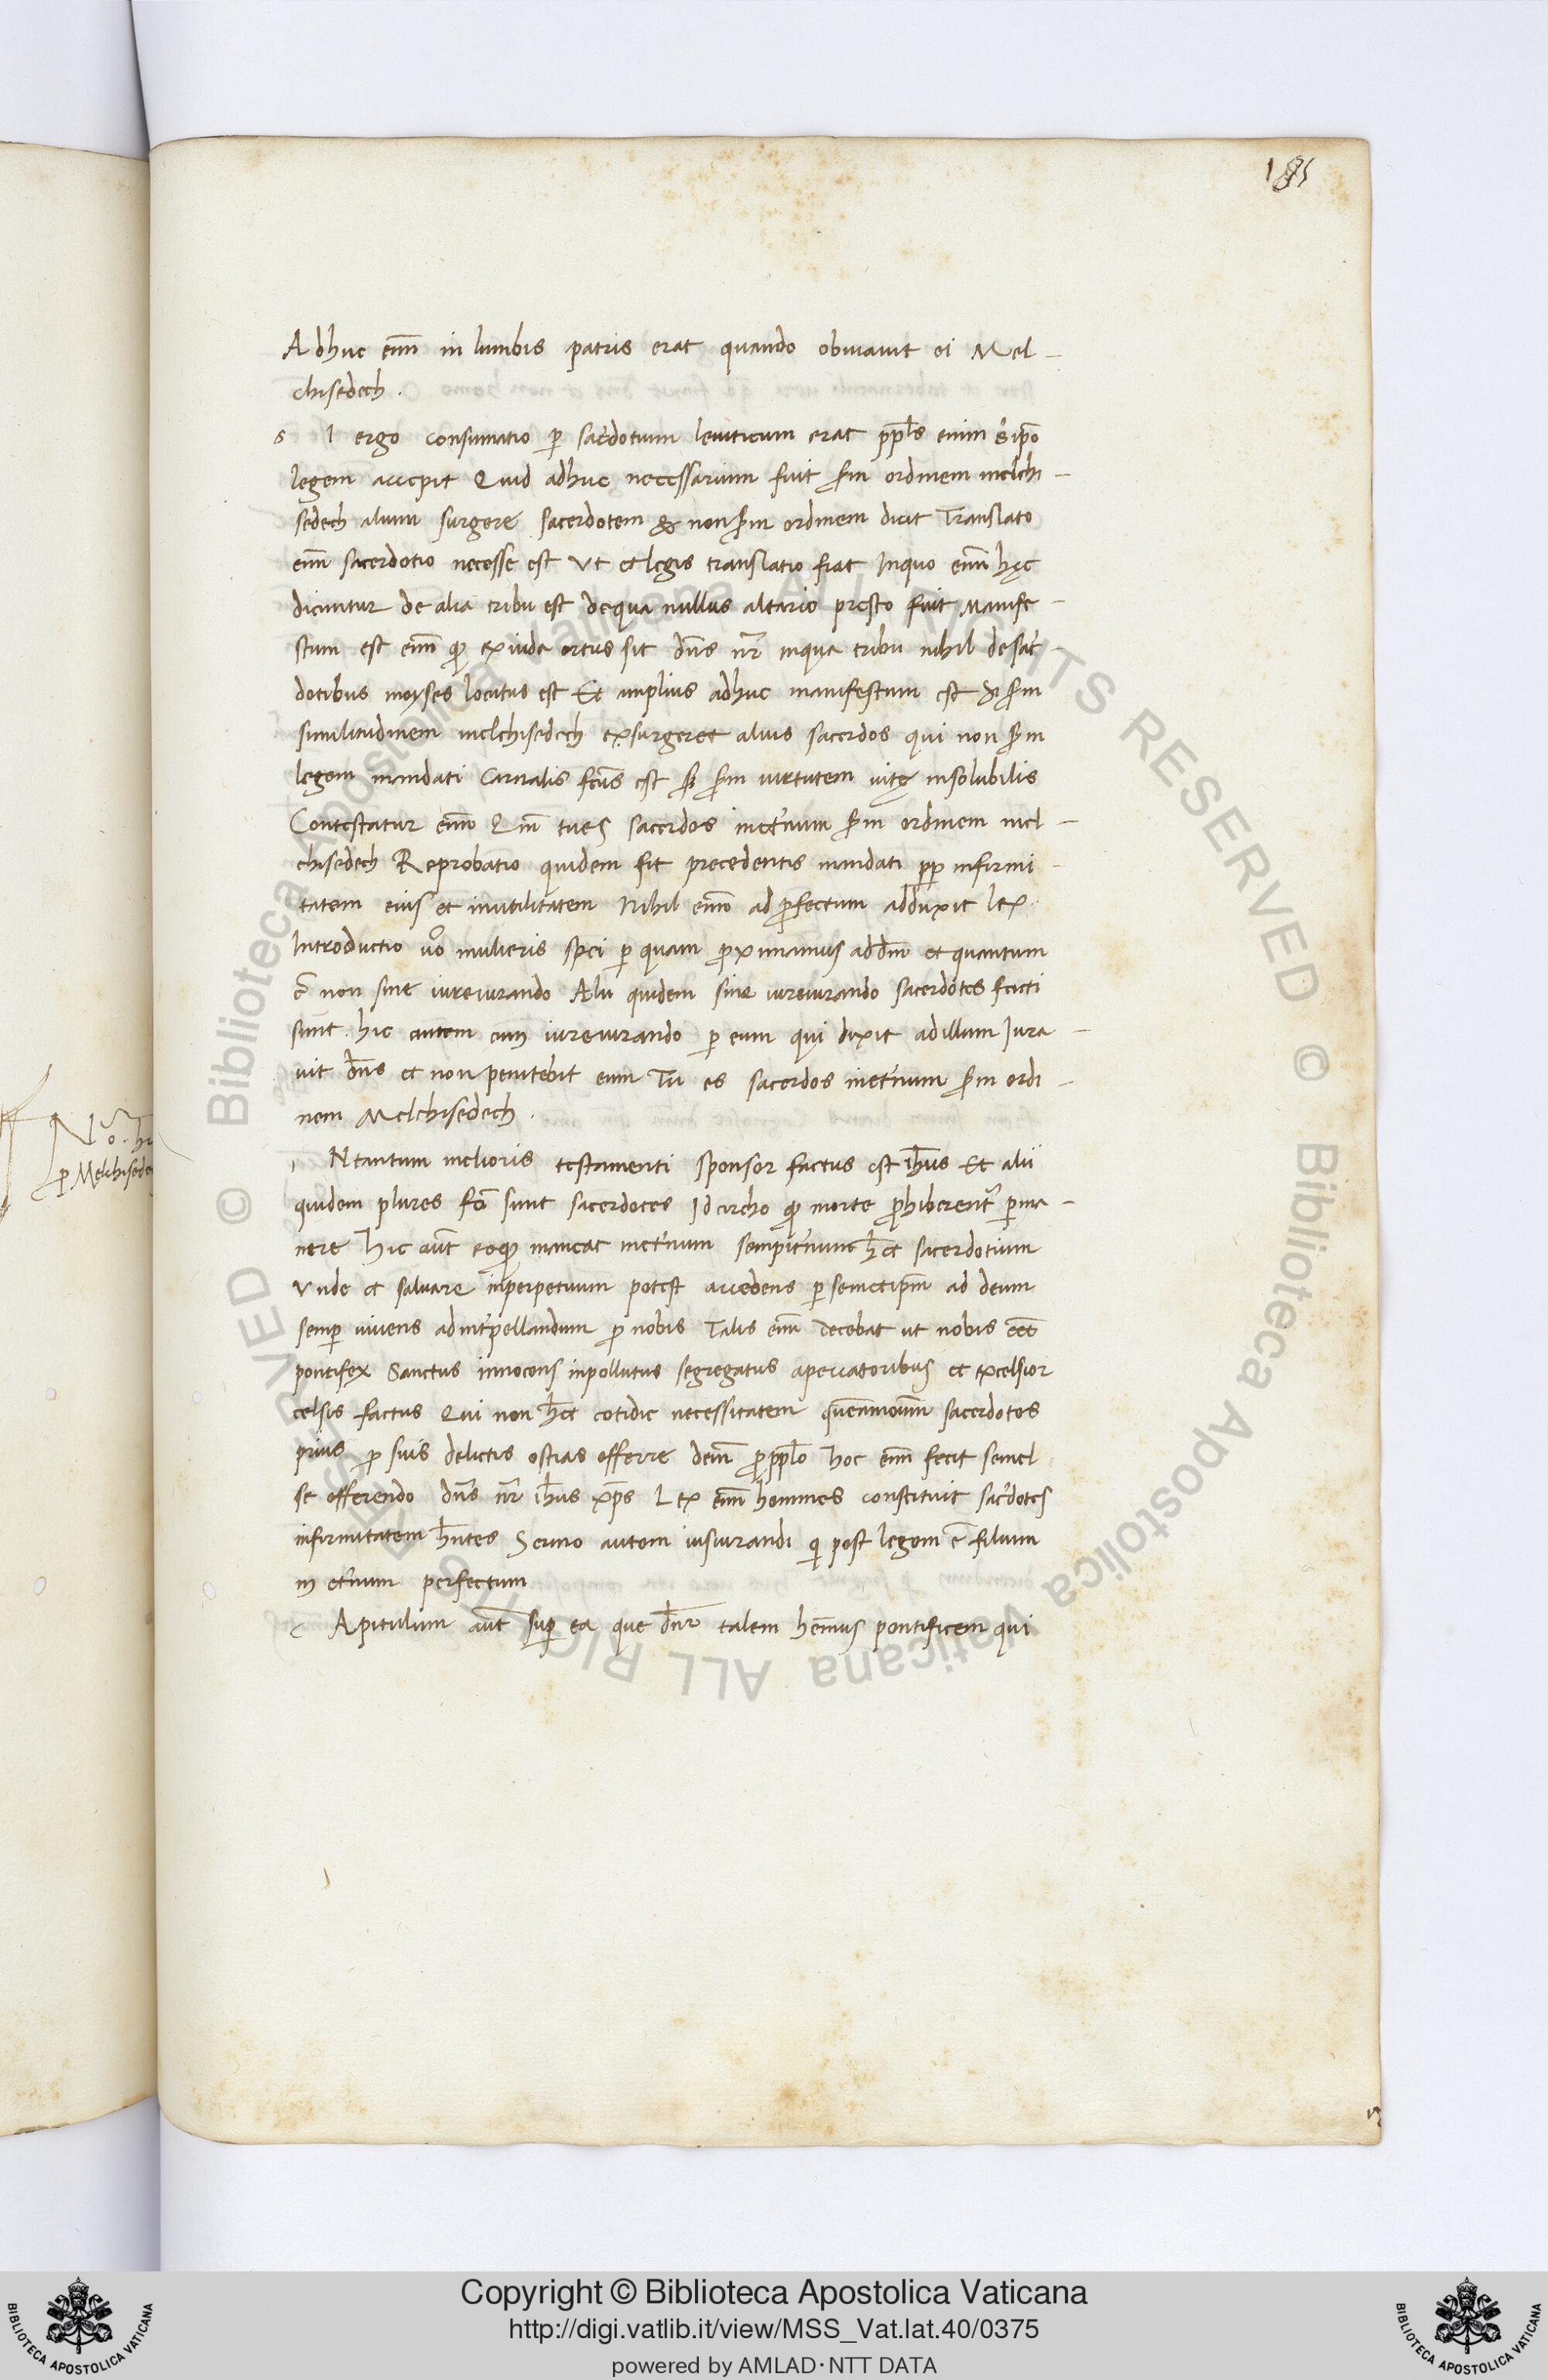 185
Adhuc enī in lumbis patris erat quando obviavit ei Mel-
chisedech.
s I ergo consumatio ꝑ sac̓dotium leviticum erat ppl̄s enim s̓ ipō
legem accepit Quid adhuc necessarium fuit scđm ordinem melchi-
sedech alium surgere sacerdotem & non scđm ordinem dicit Translato
enī sacerdotio necesse est Ut et legis translatio fiat Inquo enī hęc
dicuntur de alia tribu est dequa nullus altario presto fuit Manife-
stum est enī qđ exiuda ortus sit dn̄s nr̄ inqua tribu nihil desac̓-
dotibus moyses locutus est Et amplius adhuc manifestum est si scđm
similitudinem melchisedech exsurgeret alius sacerdos qui non scđm
legem mandati Carnalis fcūs est sꝫ scđm virtutem vitę insolubilis
Contestatur enī Qm̄ tues sacerdos inet̓num scđm ordinem mel-
chisedech Reprobatio quidem fit precedentis mandati ꝓp infirmi-
tatem eius et inutilitatem Nihil enī ad ꝑfectum adduxit lex
Introductio ūo mulieris spei ꝑ quam ꝓximamus addm̄ et quantum
ē non sine iureiurando Alii quidem sine iureiurando sacerdotes fcti
sunt hic autem cum iureiurando ꝑ eum qui dixit adillum Iura-
vit dn̄s et non penitebit eum Tu es sacerdos inet̓num scđm ordi-
nem Melchisedech.
i Ntantum melioris testamenti sponsor factus est ih̄us Et alii
quidem plures fcī sunt sacerdotes Idcircho qđ morte ꝓhiberent̓ ꝑma-
nere Hic aūt eoqđ maneat inet̓num sempit̓num h̄et sacerdotium
Unde et salvare inperpetuum potest accedens ꝑ semetipm̄ ad deum
semꝑ vivens adint̓pellandum ꝓ nobis Talis enī decebat ut nobis eēt
pontifex Sanctus innocens inpollutus segregatus apeccatoribus et excelsior
celsis factus Qui non h̄et cotidie necessitatem quēadmodum sacerdotes
prius ꝓ suis delictis ostias offerre deīn ꝓ ppl̄o Hoc enī fecit semel
se offerendo dn̄s nr̄ ih̄us xp̄s Lex enī homines constituit sac̓dotes
infirmitatem h̄ntes Sermo autem iusiurandi qi post legem ē filium
in et̓num perfectum
c Apitulum aūt suꝑ ea que dn̄r talem hēmus pontificem qui
No. hi
ꝑ Melchisede
Biblioteca Apostolica Vaticana ALL RIGHTS RESERVED ©
Biblioteca Apostolica Vaticana ALL RIGHTS RESERVED ©
Copyright © Biblioteca Apostolica Vaticana
http://digi.vatlib.it/view/MSS_Vat.lat.40/0375
powered by AMLAD·NTT DATA
BIBLIOTECA APOSTOLICA VATICANA
BIBLIOTECA APOSTOLICA VATICANA